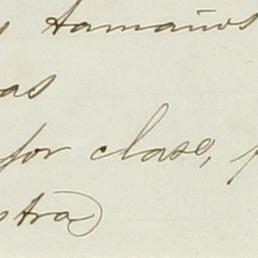 tamaños
as
por clase,
stra)